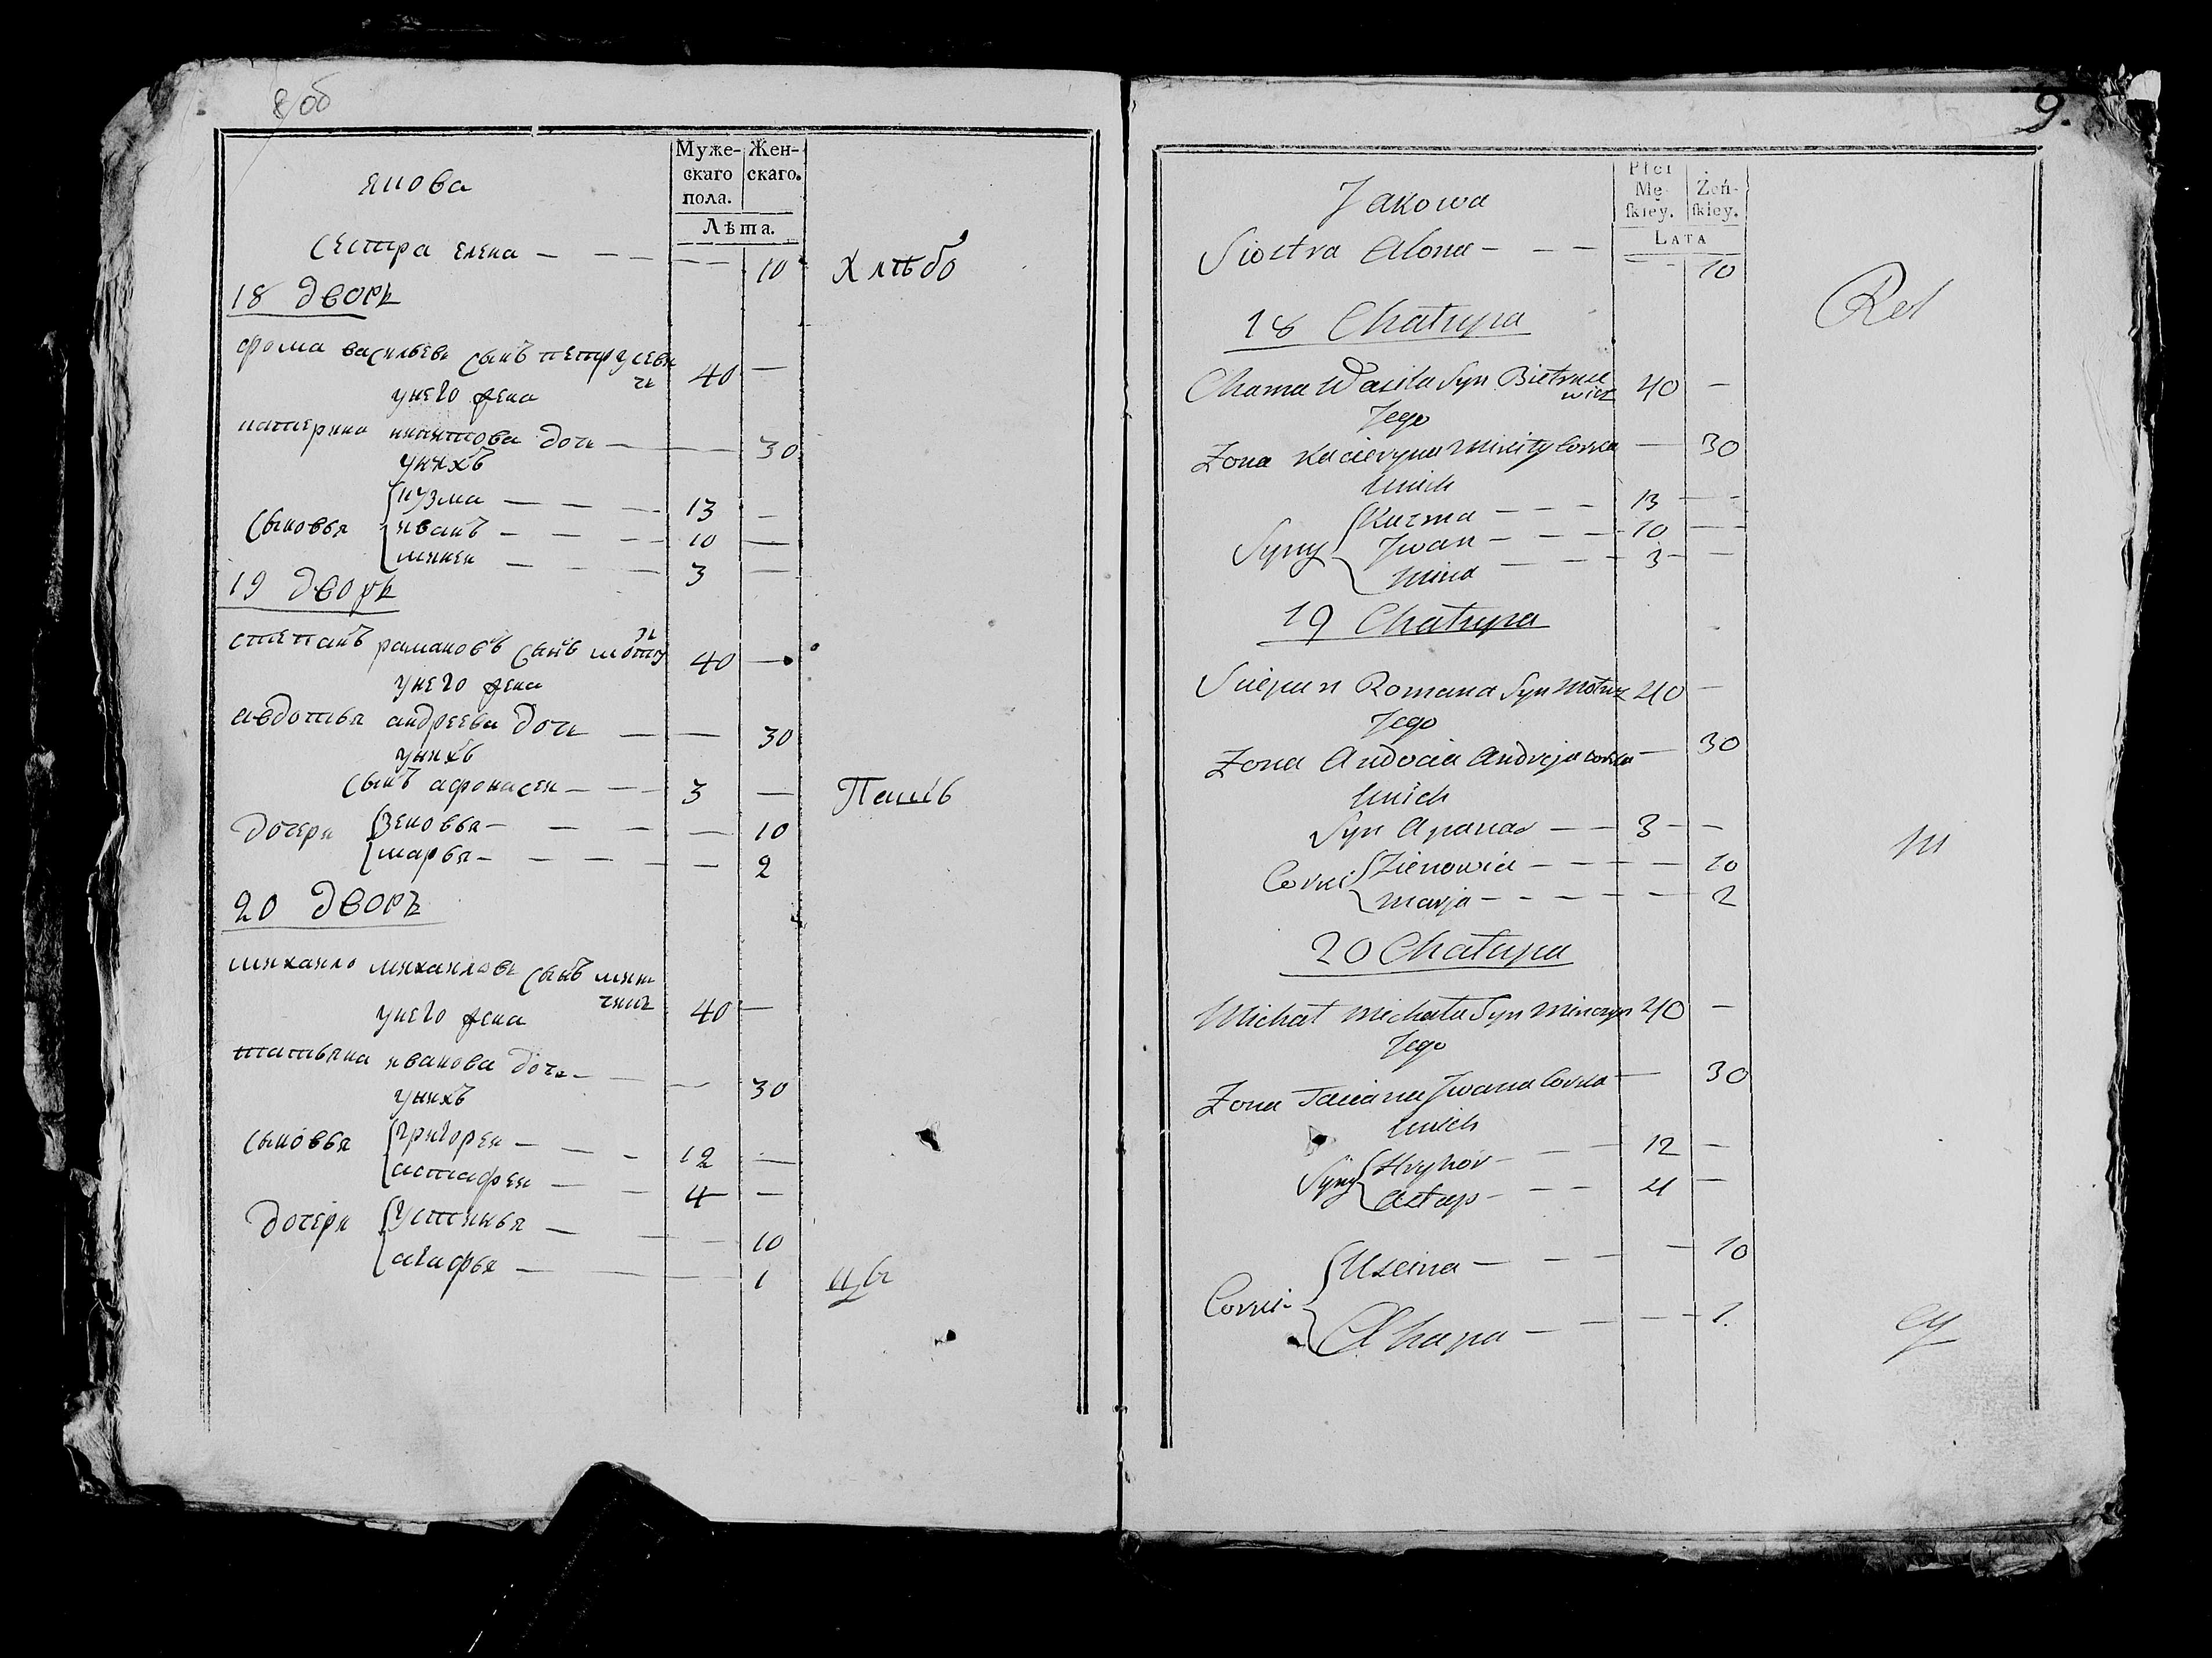 8/об
Муже-
скаго
пола.
Жен-
скаго.
Лѣта.
якова
сестра елена — — — — — 10 Хлѣбо
18 дворъ
фома васильевъ сынъ петрусеви
чъ 40 —
у него жена
катерина никитова дочь — — — 30
у нихъ
сыновья {кузма — — — — 13 —
иванъ — — — — 10 —
миней — — — — 3 —
19 дворъ
степанъ романовъ сынъ моту
зъ 40 —
у него жена
авдотья андреева дочь — — 30
у нихъ
сынъ афонасей — — — 3 — Паші6
дочери {зеновья — — — — — 10
марья — — — — — — 2
20 дворъ
михаило михаиловъ сынъ мин
чинъ
у него жена 40 —
татьяна иванова дочь — — — 30
у нихъ
сыновья {григорей — — — 12 —
астафей — — — 4 —
дочери {устинья — — — 10
агафья — — — 1 цъ
9.
Płci
Mę-
ſkiey.
Żeń-
ſkiey.
LATA
Jakowa
Siostra Alona — — — — 10
Ret
18 Chałupa
Chama Wasila Syn Pietruse
wicz 40 —
Jego
Zona Kacieryna Mikity Corka — 30
Unich
Syny {Kuzma — — — 13 — —
Jwan — — — 10 —
Mina — — — 3 —
19 Chałupa
Sciepan Romana Syn Motuz 40 —
Jego
Zona Audocia Andreja corka — 30
Unich
Syn Apanas — — 3 — —
Corki {Zienowia — — — — 10
Marja — — — — — 2
m
20 Chałupa
Michał Michała Syn Minczyn 40 —
Jego
Zona Taciana Jwana Corka — 30
Unich
Syny {Hryhor — — — 12 —
Astap — — — 4 —
Corki {Uscina — — — — 10
Ahapa — — — — 1.
cy